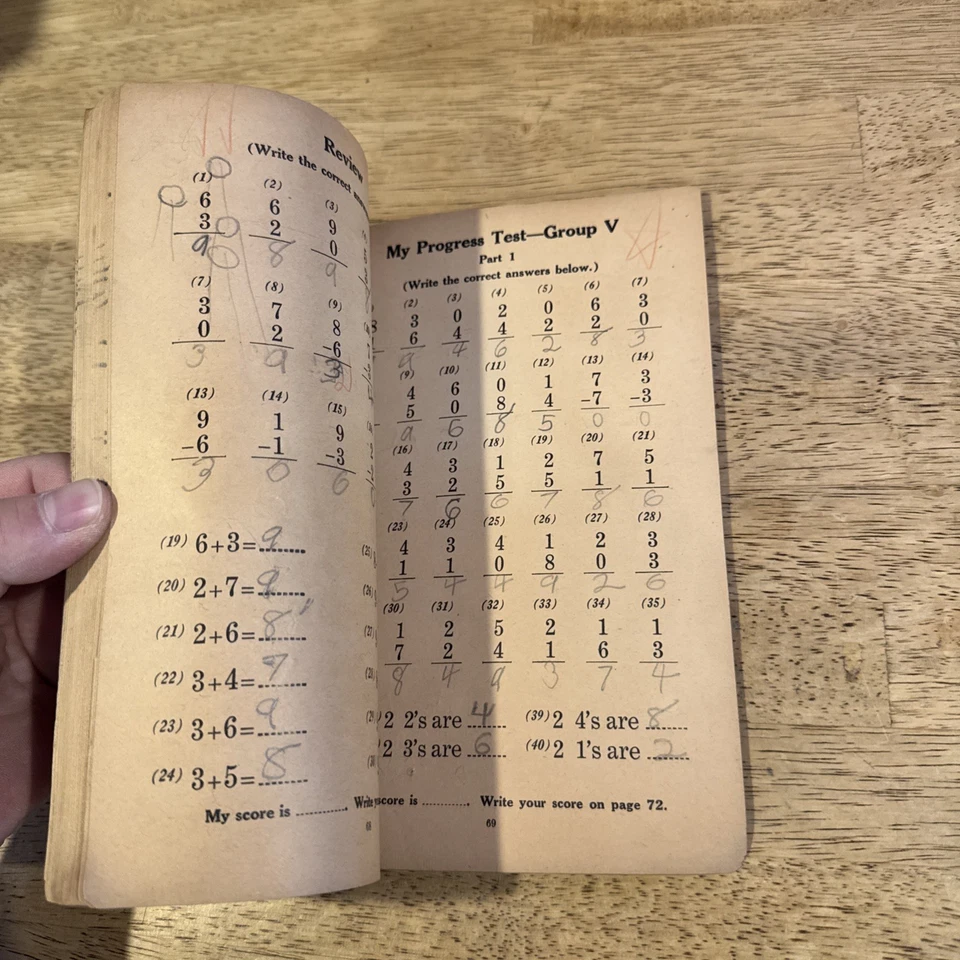 Review
(Write the correct
(1) (2) (3)
6 6 9
3 2 0
9 8 9
(7) (8) (9)
3 7 8
0 2 -6
3 9
(13) (14) (15)
9 1 9
-6 -1 -3
3 0 6
(19) 6+3= 9
(20) 2+7= 9
(21) 2+6= 8
(22) 3+4= 7
(23) 3+6= 9
(24) 3+5= 8
My score is ........... Write
My Progress Test—Group V
Part 1
(Write the correct answers below.)
(2) (3) (4) (5) (6) (7)
3 0 2 0 6 3
6 4 4 2 2 0
9 4 6 2 8 3
(9) (10) (11) (12) (13) (14)
4 6 0 1 7 3
5 0 8 4 -7 -3
9 6 8 5 0 0
(16) (17) (18) (19) (20) (21)
4 3 1 2 7 5
3 2 5 5 1 1
7 6 6 7 8 6
(23) (24) (25) (26) (27) (28)
4 3 4 1 2 3
1 1 0 8 0 3
5 4 4 9 2 6
(30) (31) (32) (33) (34) (35)
1 2 5 2 1 1
7 2 4 1 6 3
8 4 9 3 7 4
2 2's are 4 (39) 2 4's are 8
2 3's are 6 (40) 2 1's are 2
score is ........... Write your score on page 72.
69